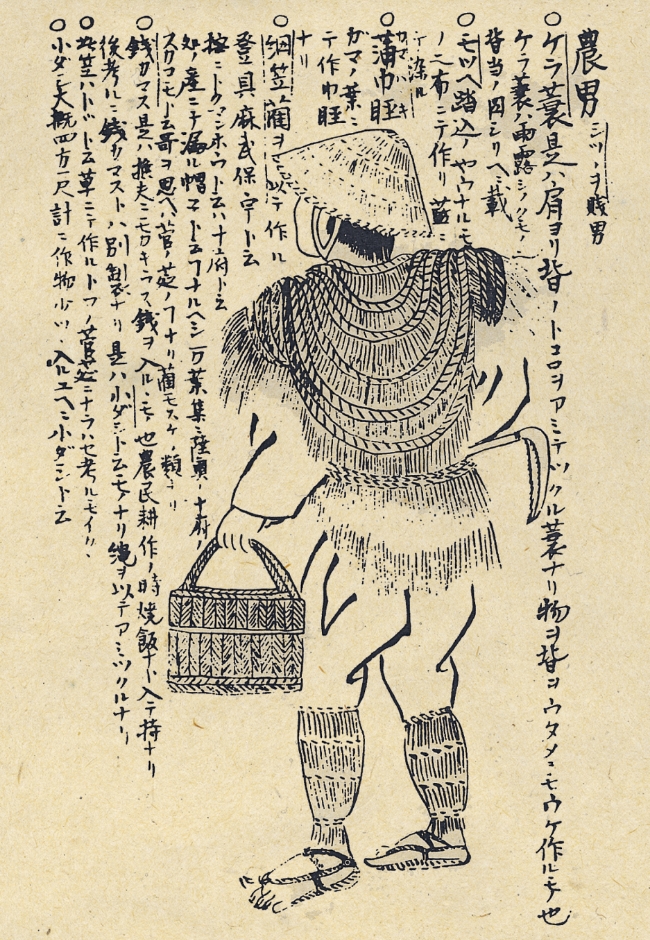 農男 シツノヲ賤男
○ケラ蓑是ハ肩ヨリ背ノトコロヲアミテツクル蓑ナリ物ヲ背ヲウタメニモウケ作ルモノ也
ケラ蓑ハ雨露シノクモノ
背当ノ図シリヘニ載
○モツヘ踏込ノヤウナルモ
ノ之布ニテ作リ藍ニ
テ染ル
○蒲巾脛 カマハヽキ
カマノ葉ニ
テ作巾脛
ナリ
○網笠藺ヲ以テ作ル
登具麻武保宇ト云
按ニトクマンホウト云ハ十府ト云
処ノ産ニテ帽子ト云フナルヘシ万葉集ニ陸奥ノ十府ノ
スカコモト云哥ヲ思ヘハ菅ノ莚ノフナリ藺モスケノ類ナリ
○銭カマス是ハ樵夫ニモカキラス銭ヲ入ルヽモノ也農民耕作ノ時焼飯ナト入テ持ナリ
後考ルニ銭カマストハ別製ナリ是ハ小ダシト云モノナリ縄ヲ以テアミツクルナリ
○此笠ハト云草ニテ作ルト菅莚ニナラハセ考ルモイカヽ
○小ダシ大概四方一尺計ニ作物少シヽ入ルユヘニ小ダシト云